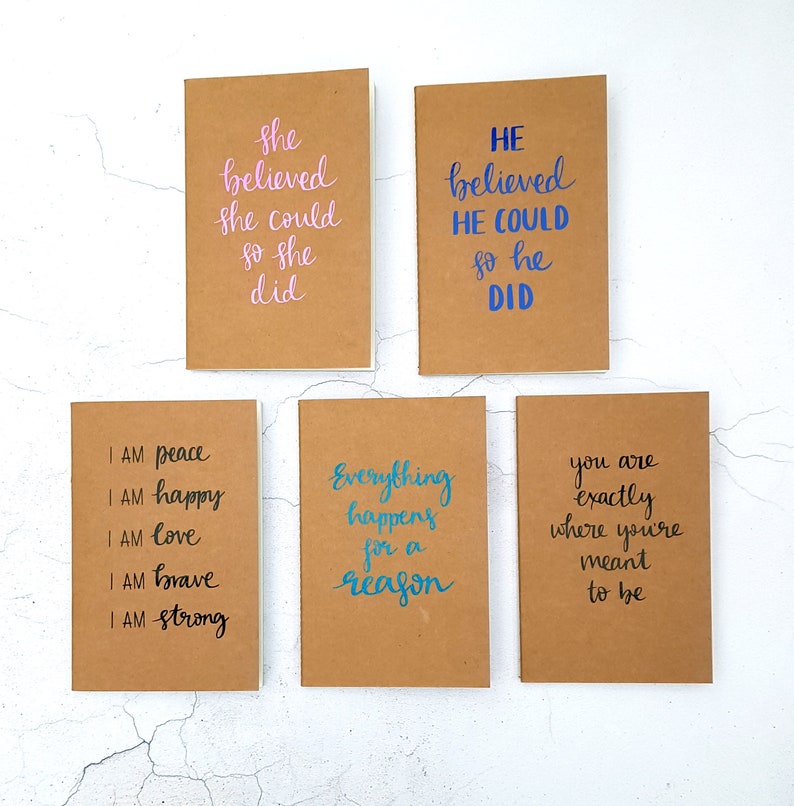 she
believed
she could
so she
did
HE
believed
HE COULD
so he
DID
I AM peace
I AM happy
I AM love
I AM brave
I AM strong
Everything
happens
for a
reason
you are
exactly
where you're
meant
to be